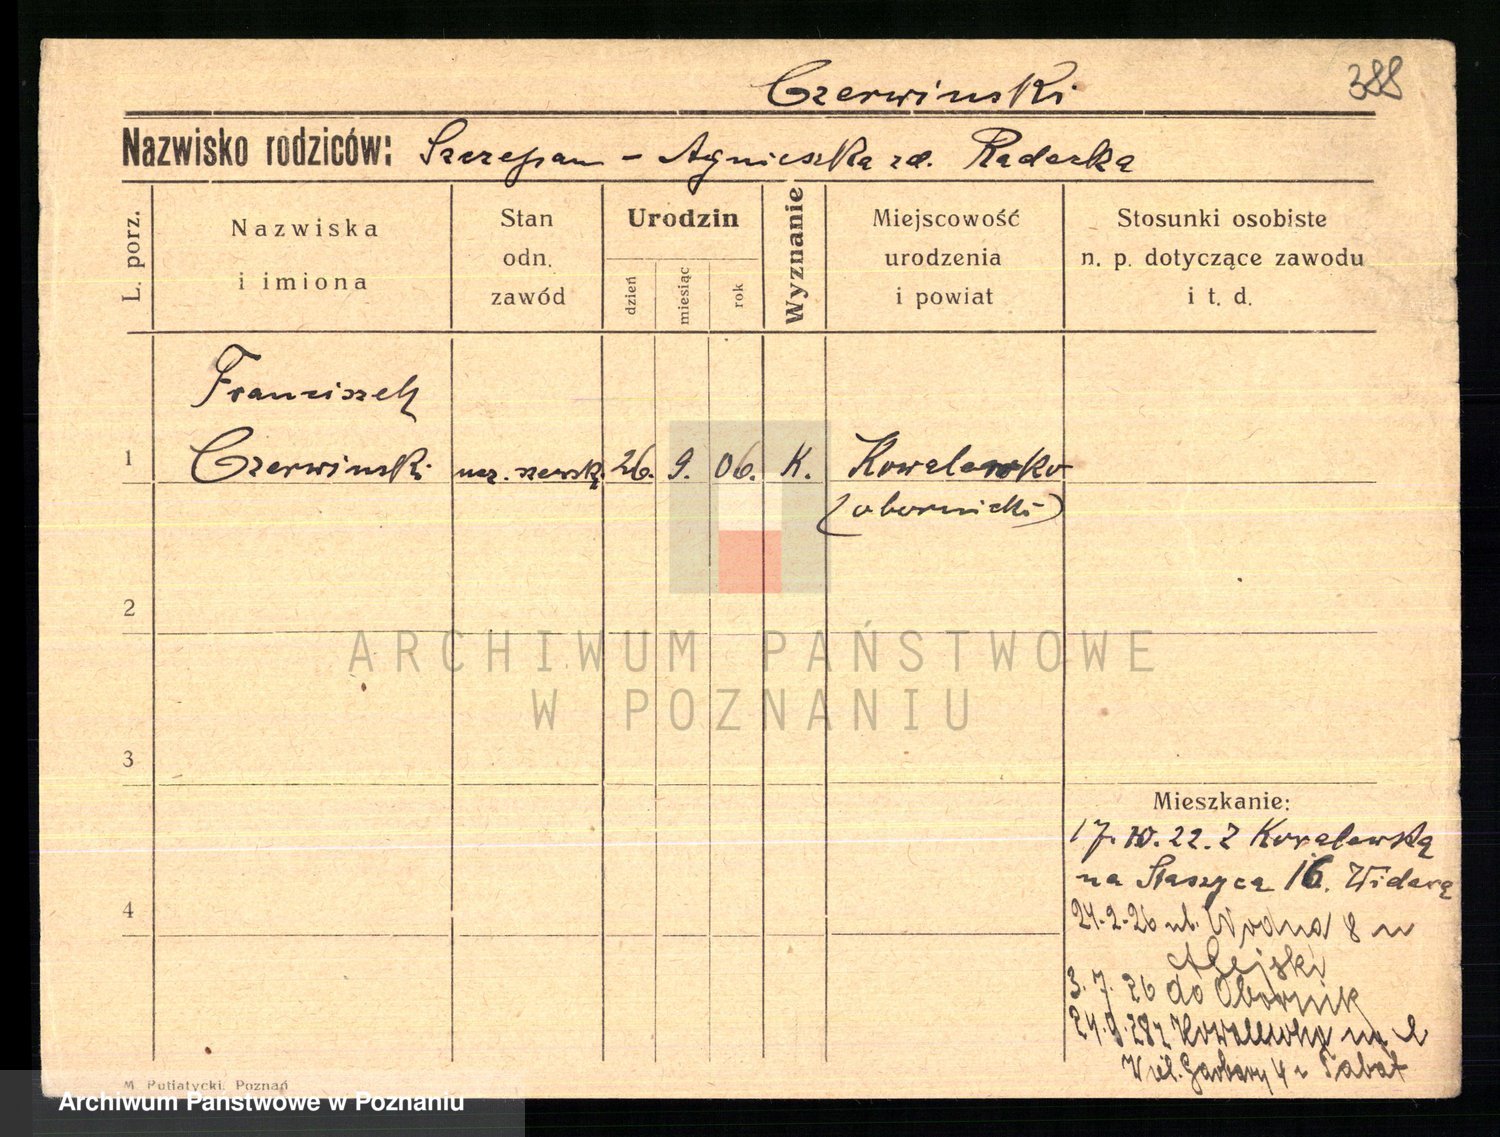 Czerwinski
388
Nazwisko rodziców: Szczepan - Agnieszka zd. Raderka
L. porz.
Nazwiska
i imiona
Stan
odn.
zawód
Urodzin
dzień
miesiąc
rok
Wyznanie
Miejscowość
urodzenia
i powiat
Stosunki osobiste
n. p. dotyczące zawodu
i t. d.
Franciszek
1 Czerwinski ucz. szewski 26. 9. 06. K. Kowalewko
(obornicki)
2
3
4
ARCHIWUM PAŃSTWOWE
W POZNANIU
Mieszkanie:
17. 10. 22. z
na Staszyca 16.
24.2.26 ul. Wodna 8 u
3. 7. 26 do Obornik
Garbary 4
M. Putiatycki, Poznań
Archiwum Państwowe w Poznaniu